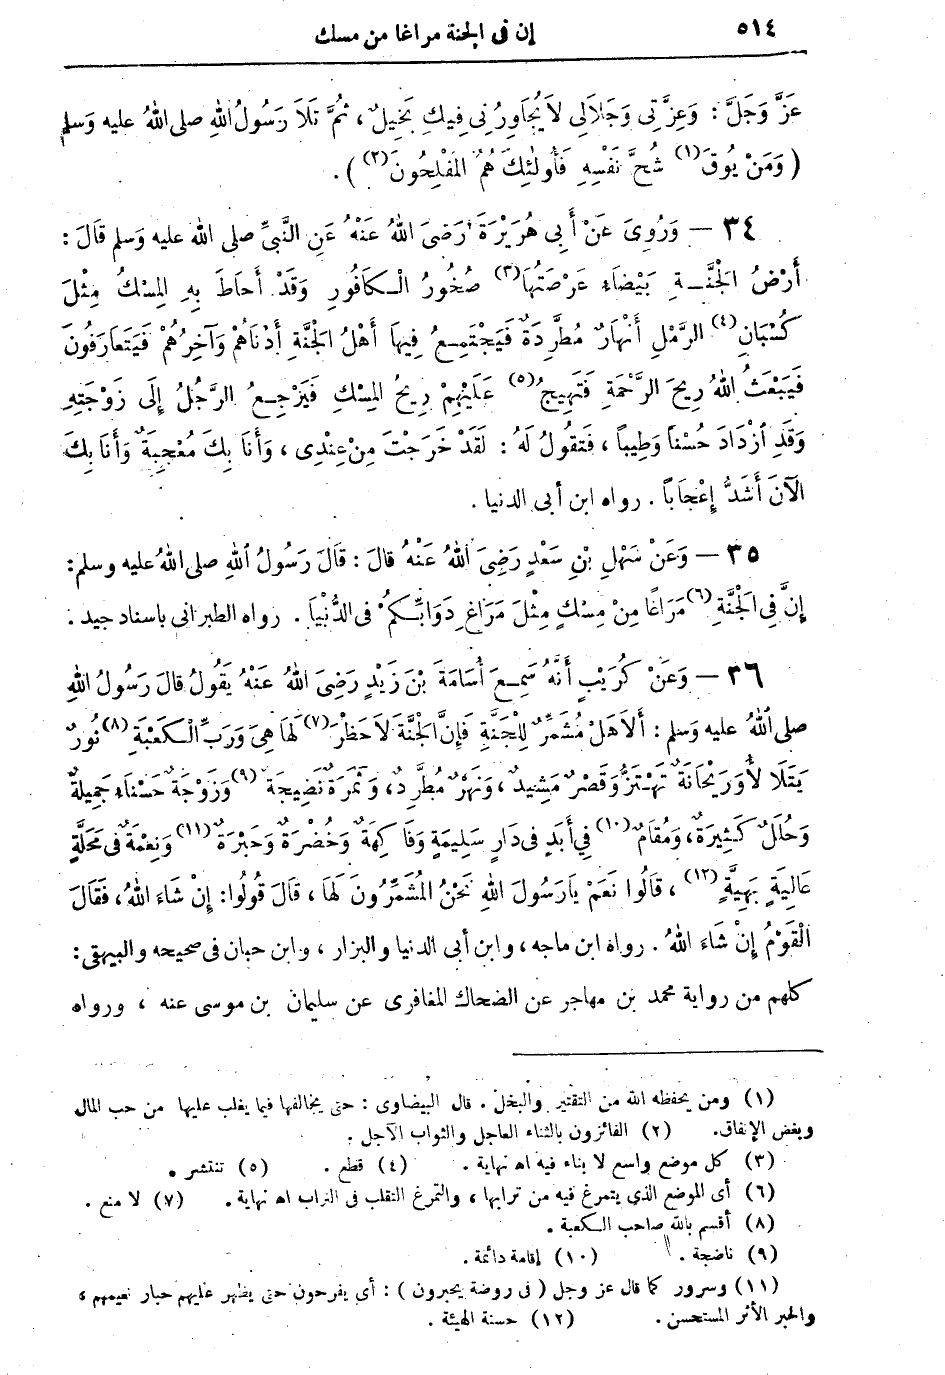 ٥١٤ إن فى الجنة مراغا من مسك
عَزَّ وَجَلَّ : وَعِزَّتِى وَجَلَالِى لَا يُجَاوِرُنِى فِيكِ بَخِيلٌ ، ثُمَّ تَلَا رَسُولُ اللهِ صلى اللهُ عليه وَسلم
( وَمَنْ يُوقَ (١) شُحَّ نَفْسِهِ فَأُولٰئِكَ هُمُ الْمُفْلِحُونَ (٢) ) .
٣٤ — وَرُوِىَ عَنْ أَبِى هُرَيْرَةَ رَضِىَ اللهُ عَنْهُ عَنِ النَّبِىِّ صلى الله عليه وَسلم قَالَ :
أَرْضُ الْجَنَّــةِ بَيْضَاءُ عَرْصَتُهَا (٣) صُخُورُ الْـكَافُورِ وَقَدْ أَحَاطَ بِهِ الْمِسْكُ مِثْلَ
كُثْبَانِ (٤) الرَّمْلِ أَنْهَارٌ مُطَّرِدَةٌ فَيَجْتَمِـعُ فِيهاَ أَهْلُ الْجَنَّةِ أَدْنَاهُمْ وَآخِرُهُمْ فَيَتَعَارَفُونَ
فَيَبْعَثُ اللهُ رِيحَ الرَّحْمَةِ فَتَهِيجُ (٥) عَلَيْهِمْ رِيحُ الْمِسْكِ فَيَرْجِـعُ الرَّجُلُ إِلَى زَوْجَتِهِ
وَقَدِ ازْدَادَ حُسْناً وَطِيباً ، فَتَقُولُ لَهُ : لَقَدْ خَرَجْتَ مِنْ عِنْدِى ، وَأَنَا بِكَ مُعْجِبَةٌ وَأَنَا بِكَ
الْآنَ أَشَدُّ إِعْجَاباً . رواه ابن أبى الدنيا .
٣٥ — وَعَنْ سَهْلِ بْنِ سَعْدٍ رَضِىَ اللهُ عَنْهُ قالَ : قَالَ رَسُولُ اللهِ صلى اللهُ عليه وسلم :
إِنَّ فِى الْجَنَّةِ (٦) مَرَاغًا مِنْ مِسْكٍ مِثْلَ مَرَاغِ دَوَابِّـكُمْ فى الدُّنْياَ . رواه الطبرانى باسناد جيد .
٣٦ — وَعَنْ كُرَيْبٍ أَنَّهُ سَمِـعَ أُسَامَةَ بْنَ زَيْدٍ رَضِىَ اللهُ عَنْهُ يَقُولُ قالَ رَسُولُ اللهِ
صلى اللهُ عليه وَسلم : أَلَا هَلْ مُشَمِّرٌ لِلْجَنَّةِ فَإِنَّ الْجَنَّةَ لَا حَظْرَ (٧) لَهَا هِىَ وَرَبِّ الْـكَعْبَةِ (٨) نُورٌ
يَتَلَأْلَأُ وَرَيْحَانَةٌ تَهْتَزُّ وَقَصْرٌ مَشِيدٌ ، وَنَهْرٌ مُطَّرِدٌ ، وَثَمَرَةٌ نَضِيجَةٌ (٩) وَزَوْجَةٌ حَسْنَاءُ جَمِيلَةٌ
وَحُلَلٌ كَثِيرَةٌ ، وَمُقَامٌ (١٠) فِى أَبَدٍ فى دَارٍ سَلِيمَةٍ وَفَاكِهَةٌ وَخُضْرَةٌ وَحَبْرَةٌ (١١) وَنِعْمَةٌ فى مَحَلَّةٍ
عَالِيَةٍ بَهِيَّةٍ (١٢) ، قَالُوا نَعَمْ يَا رَسُولَ اللهِ نَحْنُ الْمُشَمِّرُونَ لَهَا ، قَالَ قُولُوا : إِنْ شَاءَ اللهُ ، فَقَالَ
الْقَوْمُ إِنْ شَاءَ اللهُ . رواه ابن ماجه ، وابن أبى الدنيا والبزار ، وابن حبان فى صحيحه والبيهقى :
كلهم من رواية محمد بن مهاجر عن الضحاك المغافرى عن سليمان بن موسى عنه ، ورواه
(١) ومن يحفظه الله من التقتير والبخل . قال البيضاوى : حتى يخالفها فيما يغلب عليها من حب المال
وبغض الإنفاق. (٢) الفائزون بالثناء العاجل والثواب الآجل .
(٣) كل موضع واسع لا بناء فيه اه نهاية . (٤) قطع . (٥) تنتشر .
(٦) أى الموضع الذى يتمرغ فيه من ترابها ، والتمرغ التقلب فى التراب اه نهاية . (٧) لا منع .
(٨) أقسم بالله صاحب الـكعبة .
(٩) ناضجة . (١٠) إقامة دائمة .
(١١) وسرور كما قال عز وجل ( فى روضة يحبرون ) : أى يفرحون حتى يظهر عليهم حبار نعيمهم ،
والحبر الأثر المستحسن . (١٢) حسنة الهيئة .